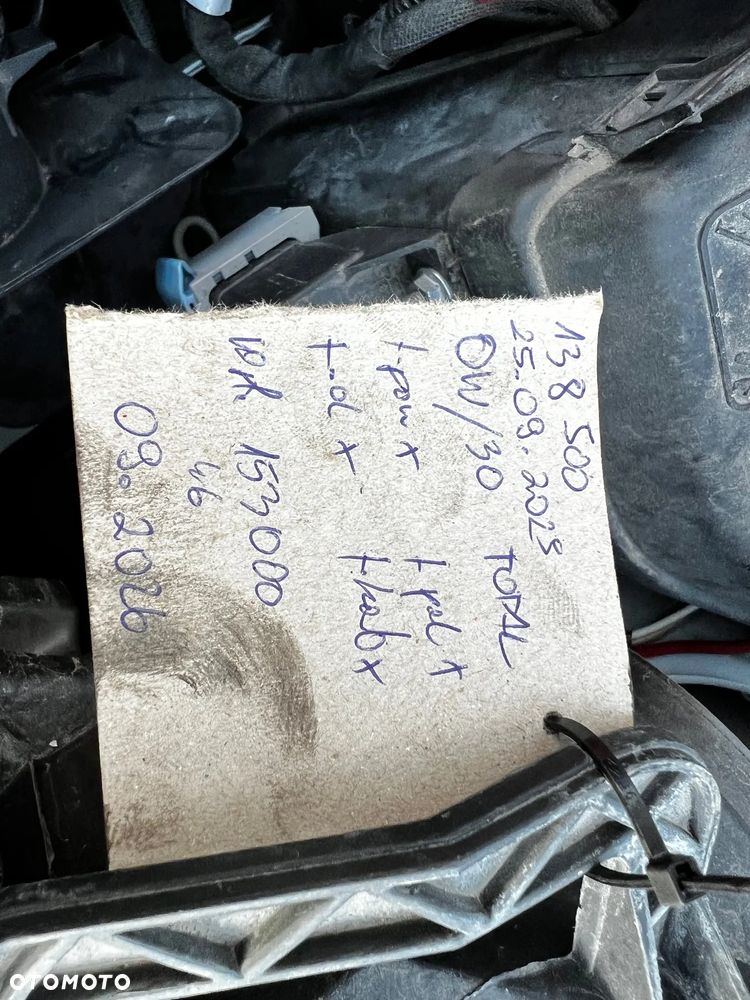 138 500
25.09.2023
0W/30 TOTAL
f.pow x f.pal x
f.ol x f.kab x
153000
46
09.2026
OTOMOTO